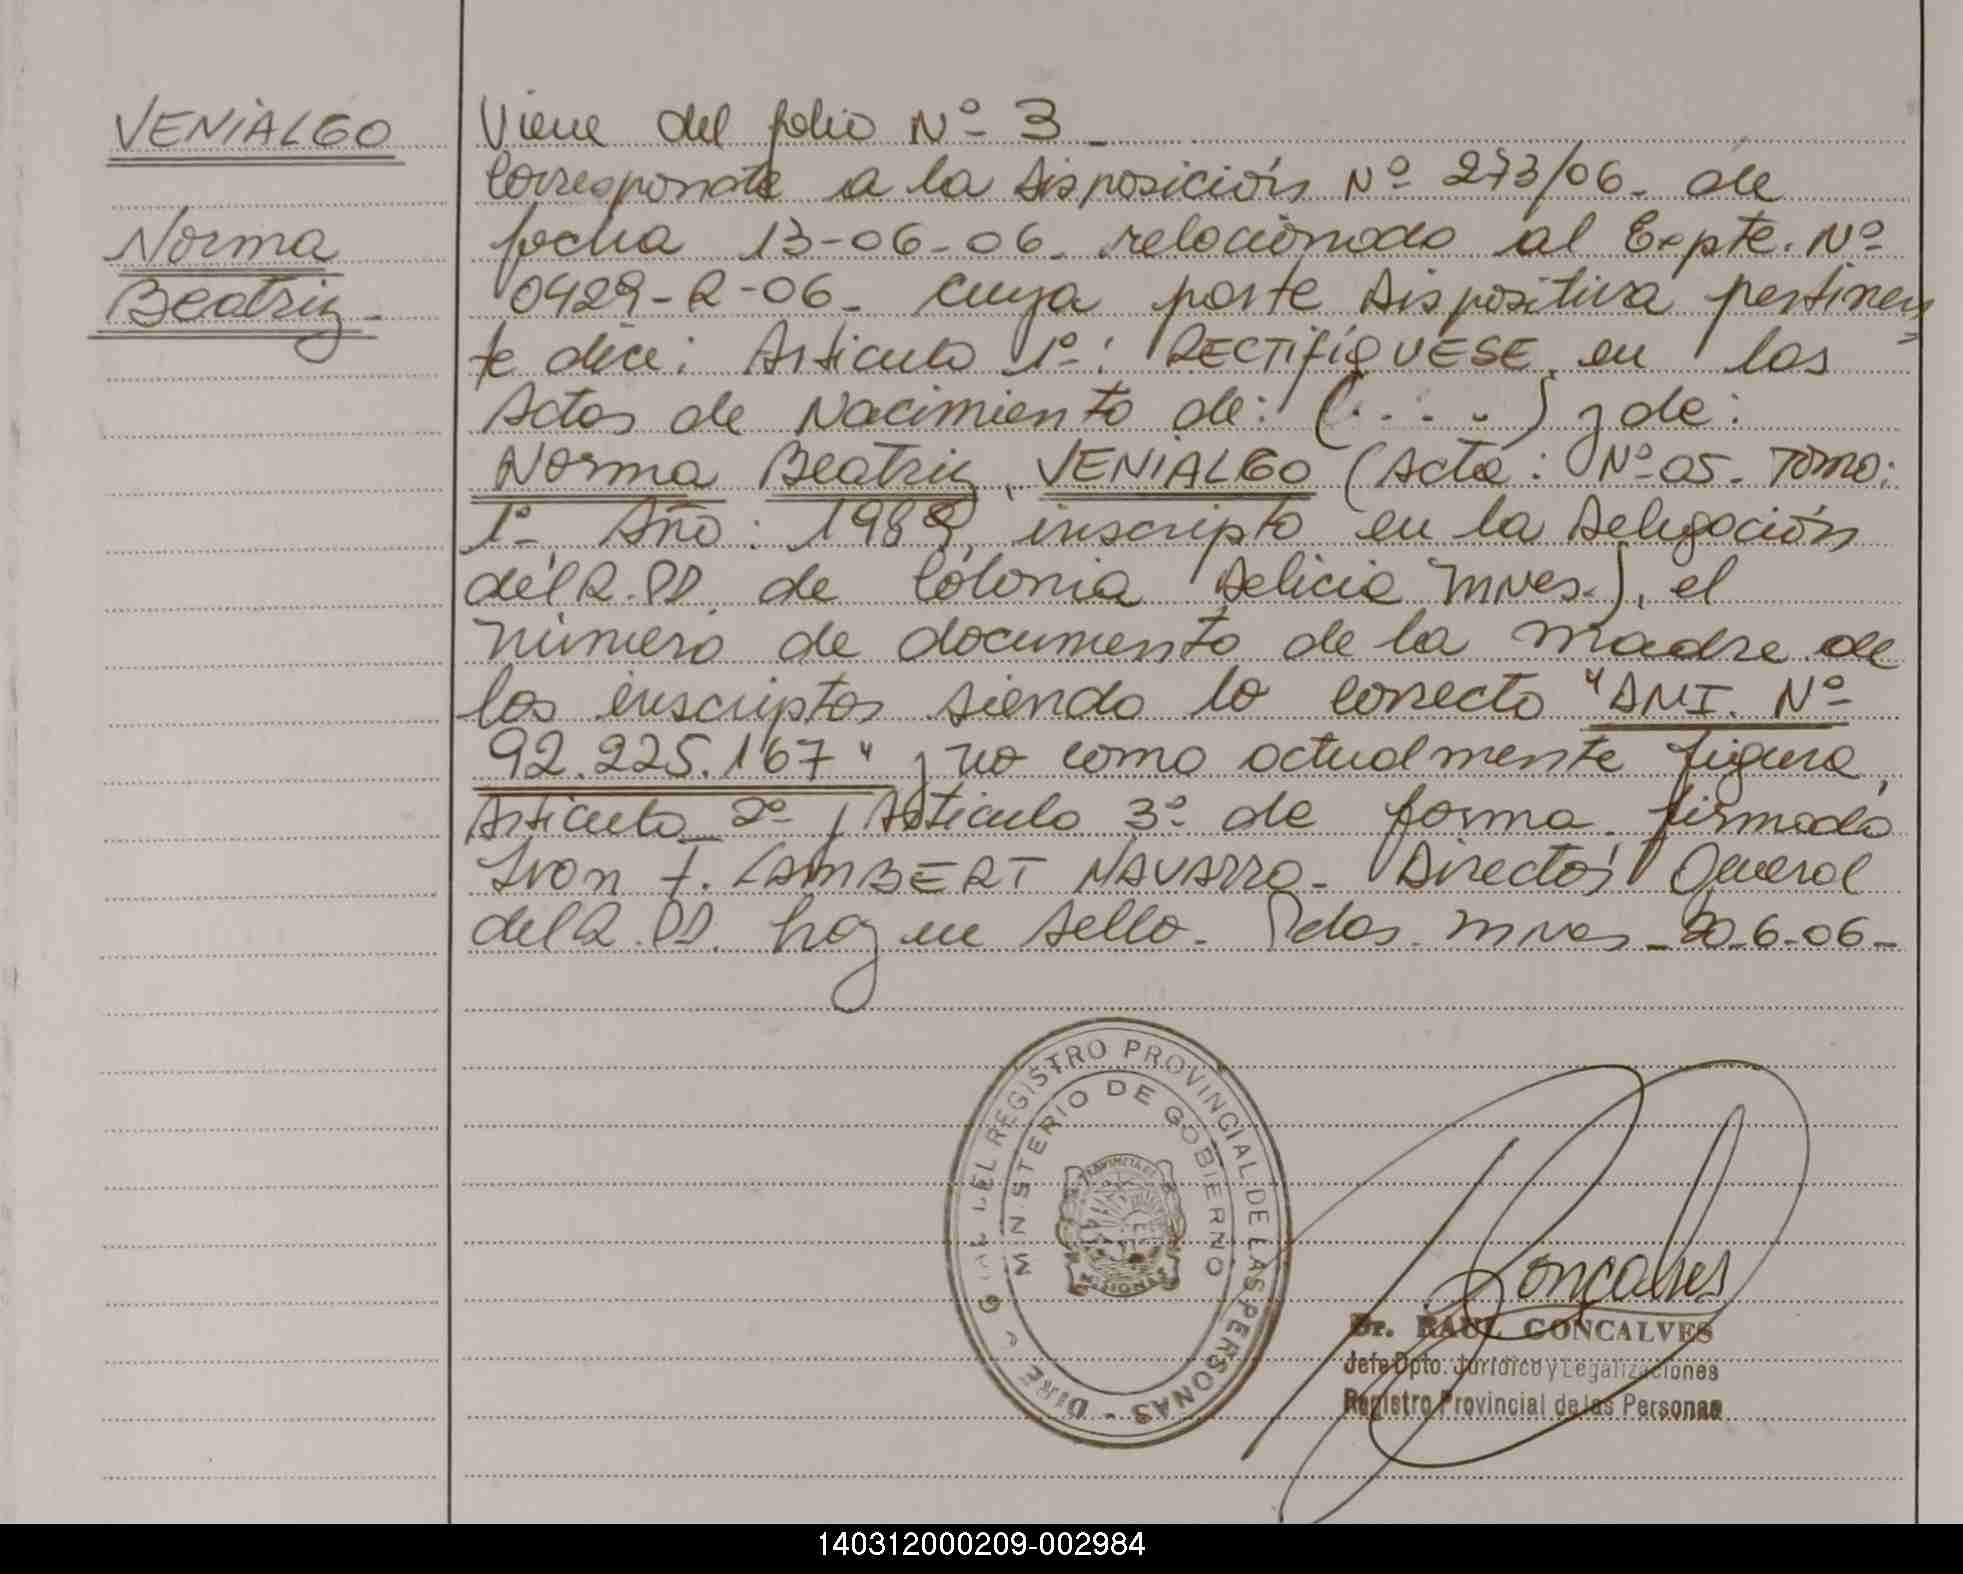 VENIALGO
Norma
Beatriz-
Viene del folio Nº 3-
Corresponde a la Disposición Nº 273/06- de
fecha 13-06-06- relacionado al Expte. Nº
0429-R-06- cuya parte Dispositiva pertinen
te dice: Articulo 1º: RECTIFÍQUESE en las
Actas de Nacimiento de: (....) y de:
Norma Beatriz, VENIALGO (Acta: Nº 05- Tomo:
1º Año: 1989, inscripto en la Delegación
del R.P.P. de Colonia Delicia Mnes.), el
número de documento de la madre de
los inscriptos siendo lo correcto "DNI. Nº
92.225.167" y no como actualmente figura,
Articulo 2º y Articulo 3º de forma. firmado
Ivan F. LAMBERT NAVARRO- Director General
del R.P.P. hay un sello- Pdas. Mnes- 20-6-06-
REGISTRO PROVINCIAL DE LAS PERSONAS - DIRE
MINISTERIO DE GOBIERNO
PROVINCIA DE
MISIONES
Goncalves
Dr. RAUL GONCALVES
Jefe Dpto. Jurídico y Legalizaciones
Registro Provincial de las Personas
140312000209-002984